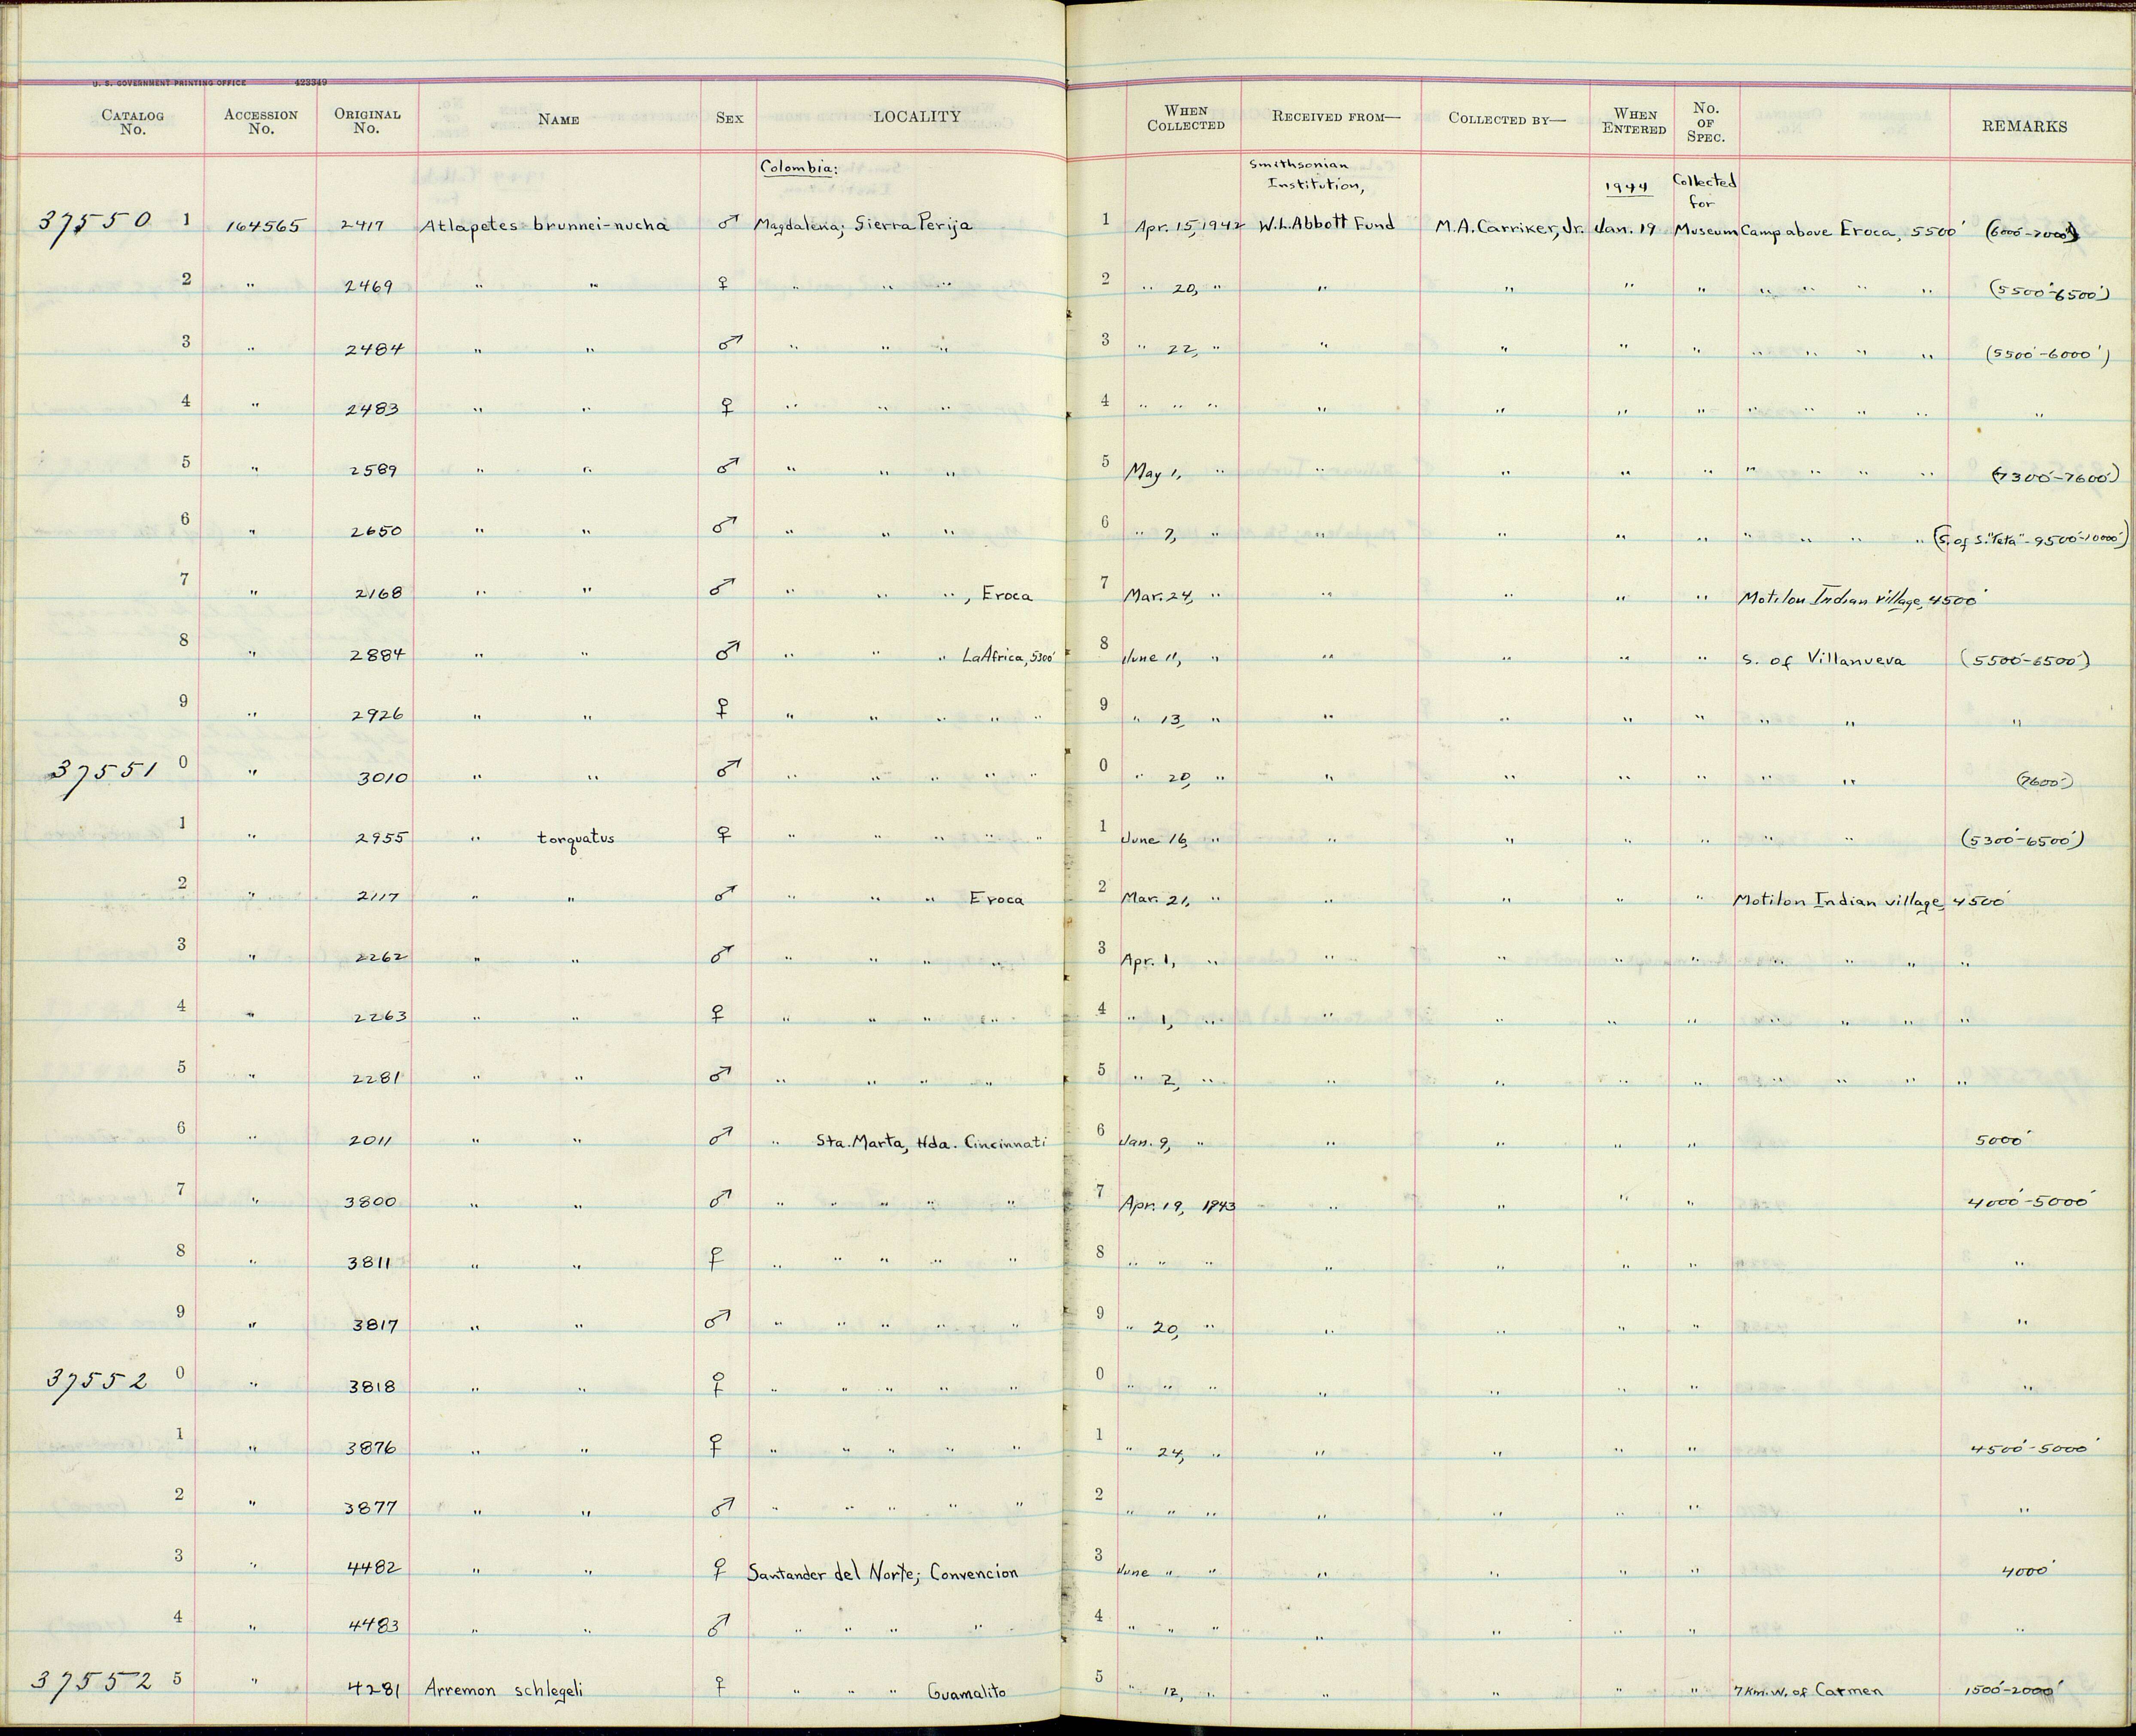 U. S. GOVERNMENT PRINTING OFFICE 423349
CATALOG No. ACCESSION No. ORIGINAL No. NAME SEX LOCALITY WHEN COLLECTED RECEIVED FROM— COLLECTED BY— WHEN ENTERED No. OF SPEC. REMARKS
Colombia: Smithsonian Institution, 1944 Collected for
37550 1 164565 2417 Atlapetes brunnei-nucha ♂ Magdalena; Sierra Perija 1 Apr. 15, 1942 W.L. Abbott Fund M.A. Carriker, Jr. Jan. 19 Museum Camp above Eroca, 5500' (6000'-7000')
2 " 2469 " " ♀ " " " 2 " 20, " " " " " " " " " (5500'-6500')
3 " 2484 " " ♂ " " " 3 " 22, " " " " " " " " " (5500'-6000')
4 " 2483 " " ♀ " " " 4 " " " " " " " " " " " "
5 " 2589 " " ♂ " " " 5 May 1, " " " " " " " " " (7300'-7600')
6 " 2650 " " ♂ " " " 6 " 7, " " " " " " " " " (S. of S. "Teta" - 9500'-10000')
7 " 2168 " " ♂ " " ", Eroca 7 Mar. 24, " " " " " Motilon Indian village, 4500'
8 " 2884 " " ♂ " " " La Africa, 5300' 8 June 11, " " " " " S. of Villanueva (5500'-6500')
9 " 2926 " " ♀ " " " " " 9 " 13, " " " " " " " "
37551 0 " 3010 " " ♂ " " " " " 0 " 20, " " " " " " " (7600')
1 " 2955 " torquatus ♀ " " " " " 1 June 16, " " " " " " " (5300'-6500')
2 " 2117 " " ♂ " " " Eroca 2 Mar. 21, " " " " " Motilon Indian village, 4500'
3 " 2262 " " ♂ " " " " 3 Apr. 1, " " " " " " " " "
4 " 2263 " " ♀ " " " " 4 " 1, " " " " " " " " "
5 " 2281 " " ♂ " " " " 5 " 2, " " " " " " " " "
6 " 2011 " " ♂ " Sta. Marta, Hda. Cincinnati 6 Jan. 9, " " " " " 5000'
7 " 3800 " " ♂ " " " " " 7 Apr. 19, 1943 " " " " 4000'-5000'
8 " 3811 " " ♀ " " " " " 8 " " " " " " " "
9 " 3817 " " ♂ " " " " " 9 " 20, " " " " " "
37552 0 " 3818 " " ♀ " " " " " 0 " " " " " " " "
1 " 3876 " " ♀ " " " " " 1 " 24, " " " " " 4500'-5000'
2 " 3877 " " ♂ " " " " " 2 " " " " " " " "
3 " 4482 " " ♀ Santander del Norte; Convencion 3 June " " " " " " 4000'
4 " 4483 " " ♂ " " " " 4 " " " " " " " "
37552 5 " 4281 Arremon schlegeli ♀ " " " Guamalito 5 " 12, " " " " " 7 Km. W. of Carmen 1500'-2000'